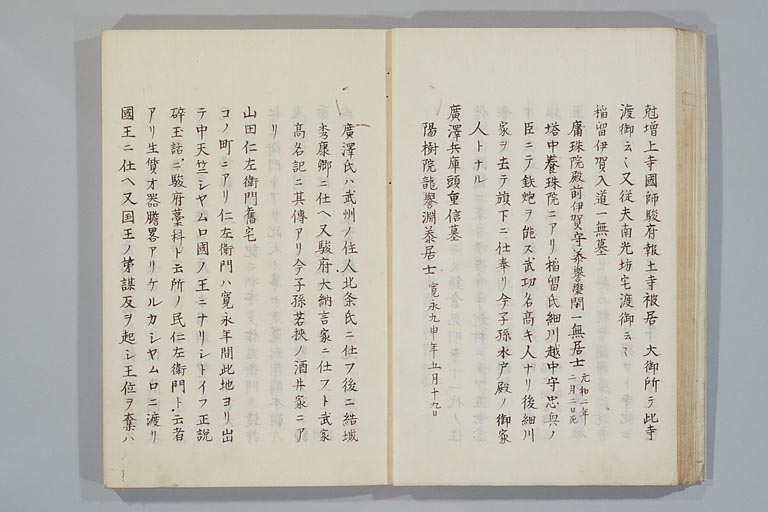 尅増上寺國師駿府報土寺被居大御所ヲ此寺
渡御云々又従夫南光坊宅渡御云々
稲留伊賀入道一無墓
庸珠院殿前伊賀守泰譽榮閑一無居士 元和二年二月二日死
塔中養珠院ニアリ稲留氏細川越中守忠興ノ
臣ニテ鉄炮ヲ能ス武功名高キ人ナリ後細川
家ヲ去テ旗下ニ仕奉リ今子孫水戸殿ノ御家
人トナル
廣澤兵庫頭重信墓
陽樹院龍譽淵泰居士 寛永九申年五月十九日
廣澤氏ハ武州ノ住人北条氏ニ仕フ後ニ結城
秀康卿ニ仕ヘ又駿府大納言家ニ仕フト武家
高名記ニ其傳アリ今子孫若挾ノ酒井家ニア
リ
山田仁左衛門舊宅
コノ町ニアリ仁左衛門ハ寛永年間此地ヨリ出
テ中天竺シヤムロ國ノ王ニナリシトイフ正説
碎玉話ニ駿府藁科ト云所ノ民仁左衛門ト云者
アリ生質才器膽畧アリケルカシヤムロニ渡リ
國王ニ仕ヘ又国王ノ第謀反ヲ起シ王位ヲ奪ハ